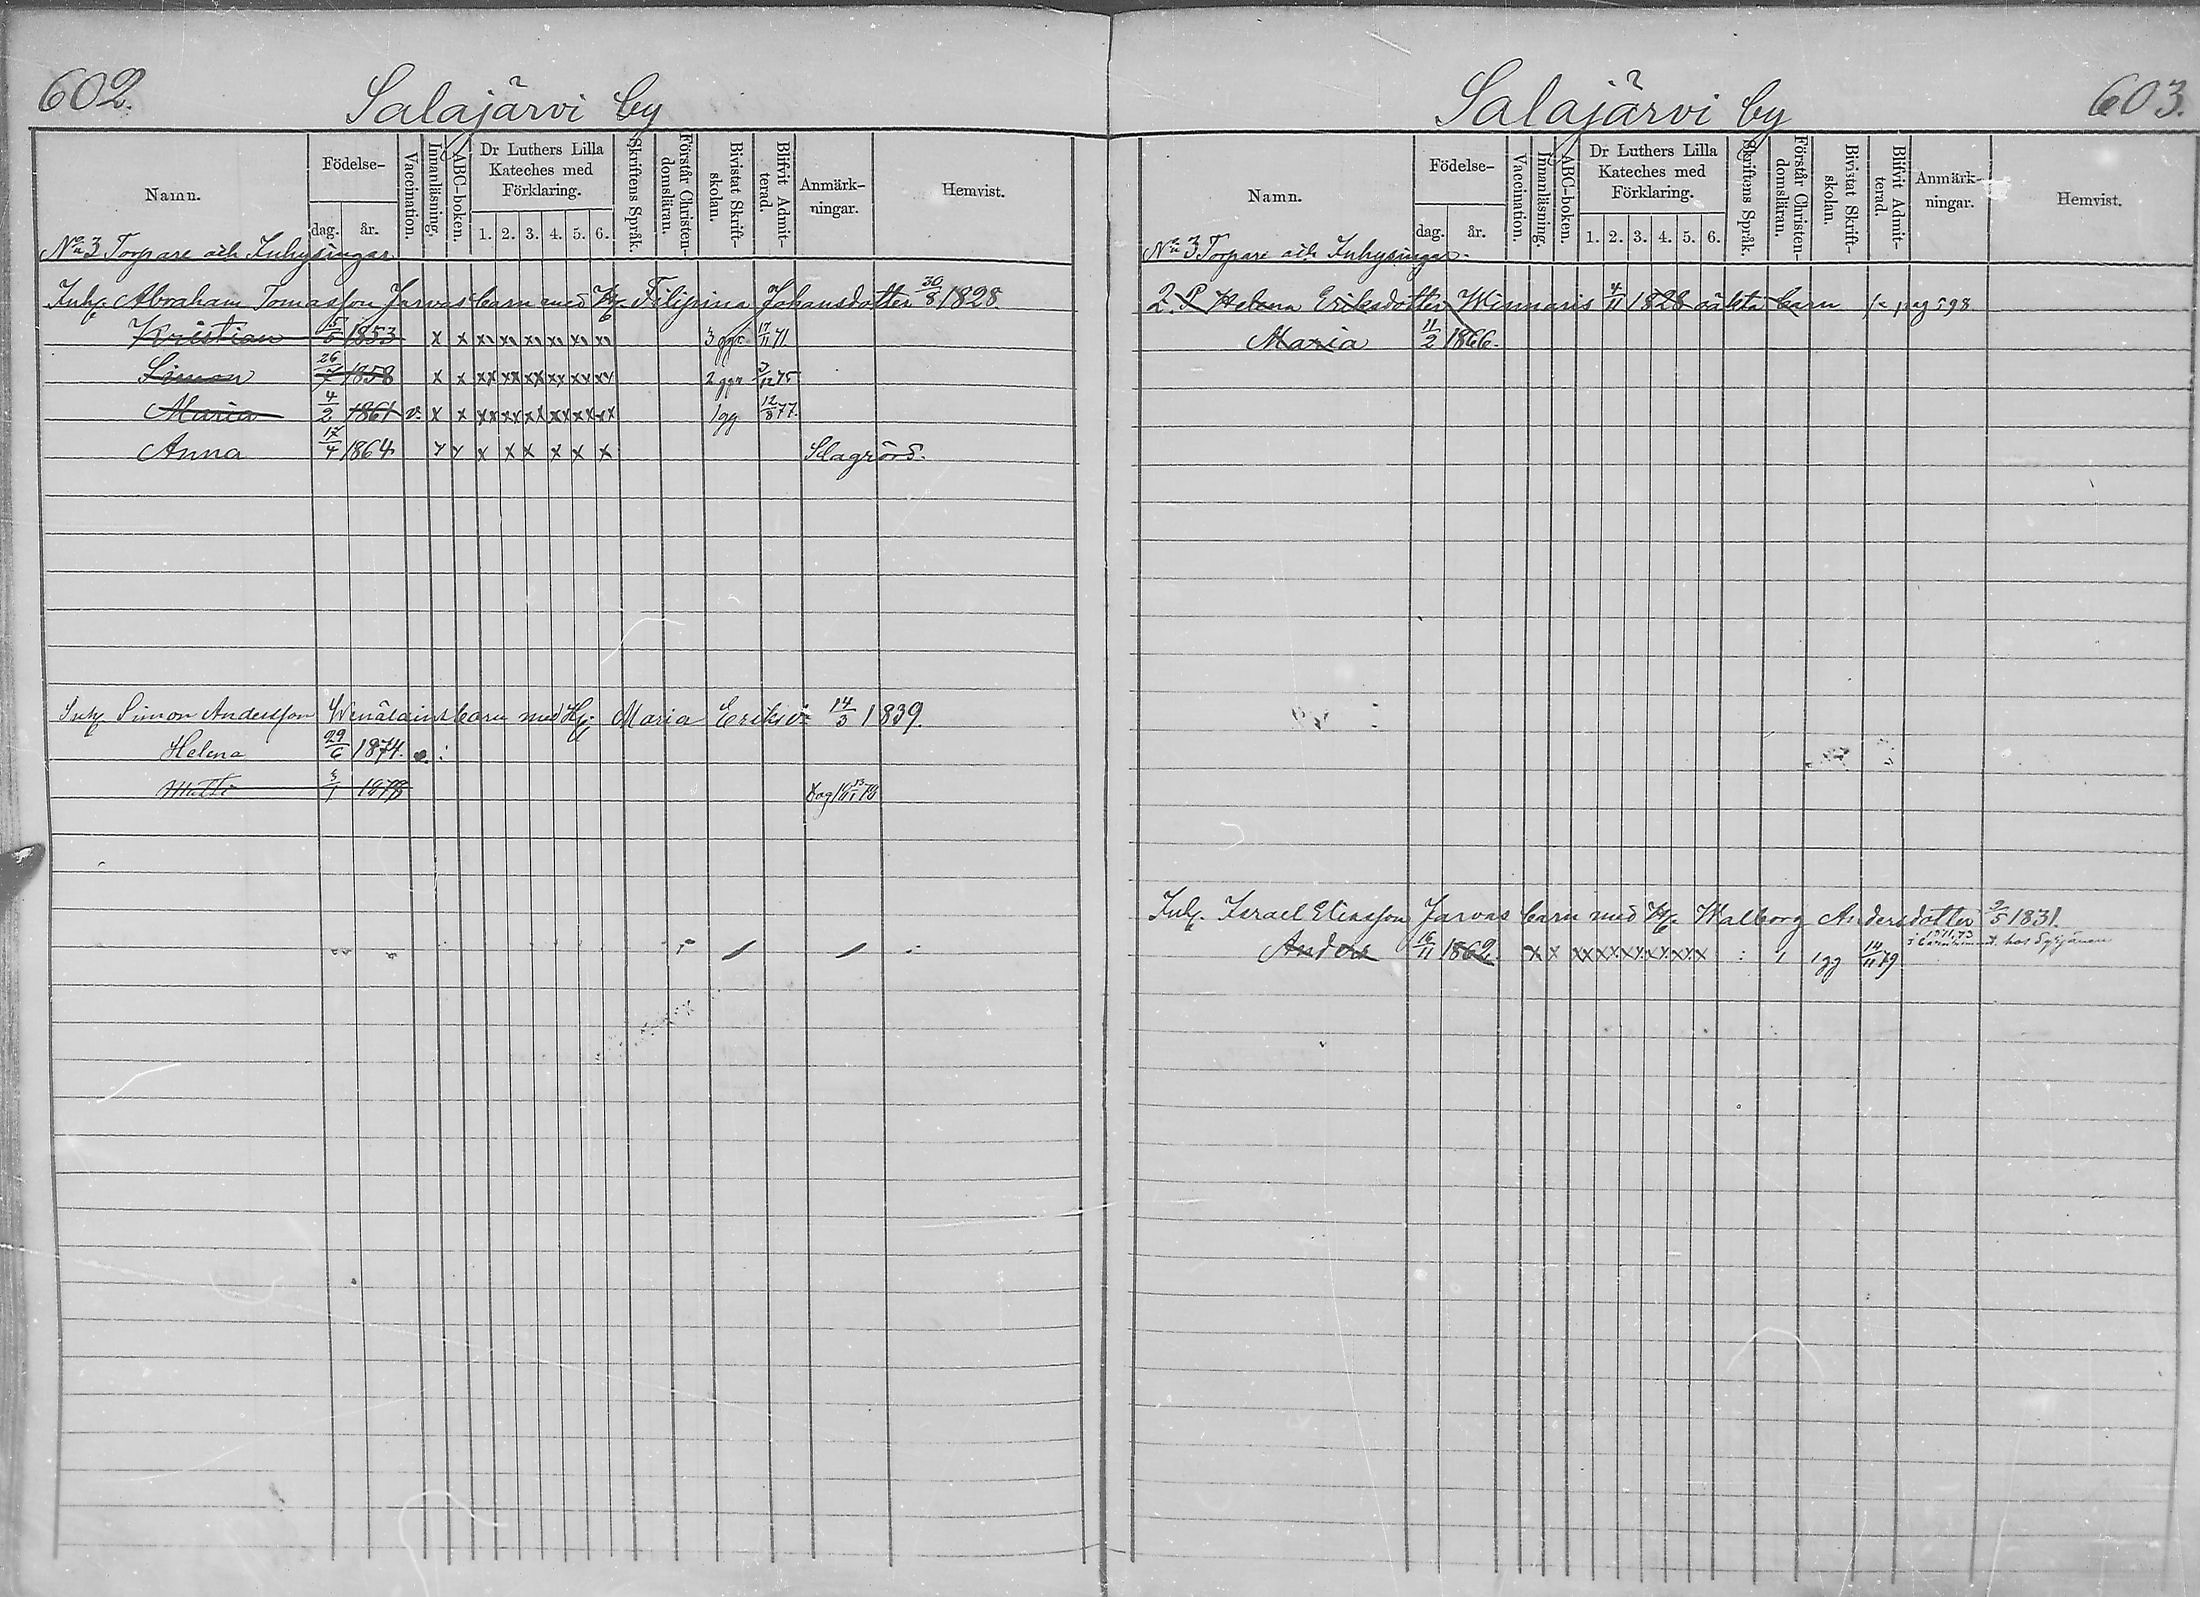 602.
Salajärvi by
Namn. Födelse- dag. år. Vaccination. Innanläsning. ABC-boken. Dr Luthers Lilla Kateches med Förklaring. 1. 2. 3. 4. 5. 6. Skriftens Språk. Förstår Christendomsläran. Bivistat Skriftskolan. Blifvit Admitterad. Anmärkningar. Hemvist.
No 3 Torpare och Inhysingar
Inh. Abraham Tomasson Jarvas barn med H. Filipina Johansdotter 30/8 1828.
Kristian 5/6 1853 x x xx xx xx xx xx xx 3 ggr 17/11 71
Simon 26/7 1858 x x xx xx xx xx xx xx 2 ggr 3/12 75
Maria 4/2 1861 v. x x xx xx xx xx xx xx 1 gg 12/8 77.
Anna 17/4 1864 x x x x x x x x Slagrörd.
Inh. Simon Andersson barn med H. Maria Eriksdr 14/3 1839.
Helena 29/6 1874.
Matti 1878
603.
Salajärvi by
Namn. Födelse- dag. år. Vaccination. Innanläsning. ABC-boken. Dr Luthers Lilla Kateches med Förklaring. 1. 2. 3. 4. 5. 6. Skriftens Språk. Förstår Christendomsläran. Bivistat Skriftskolan. Blifvit Admitterad. Anmärkningar. Hemvist.
No 3 Torpare och Inhysingar
Helena Eriksdotter Winnaris 4/11 1828 oäkta barn pag 598
Maria 11/2 1866.
Inh. Israel Eliasson Jarvas barn med H. Walborg Andersdotter 2/5 1831.
Anders 16/11 1862. x x xx xx xx xx xx xx 1 gg 14/11 79 hos